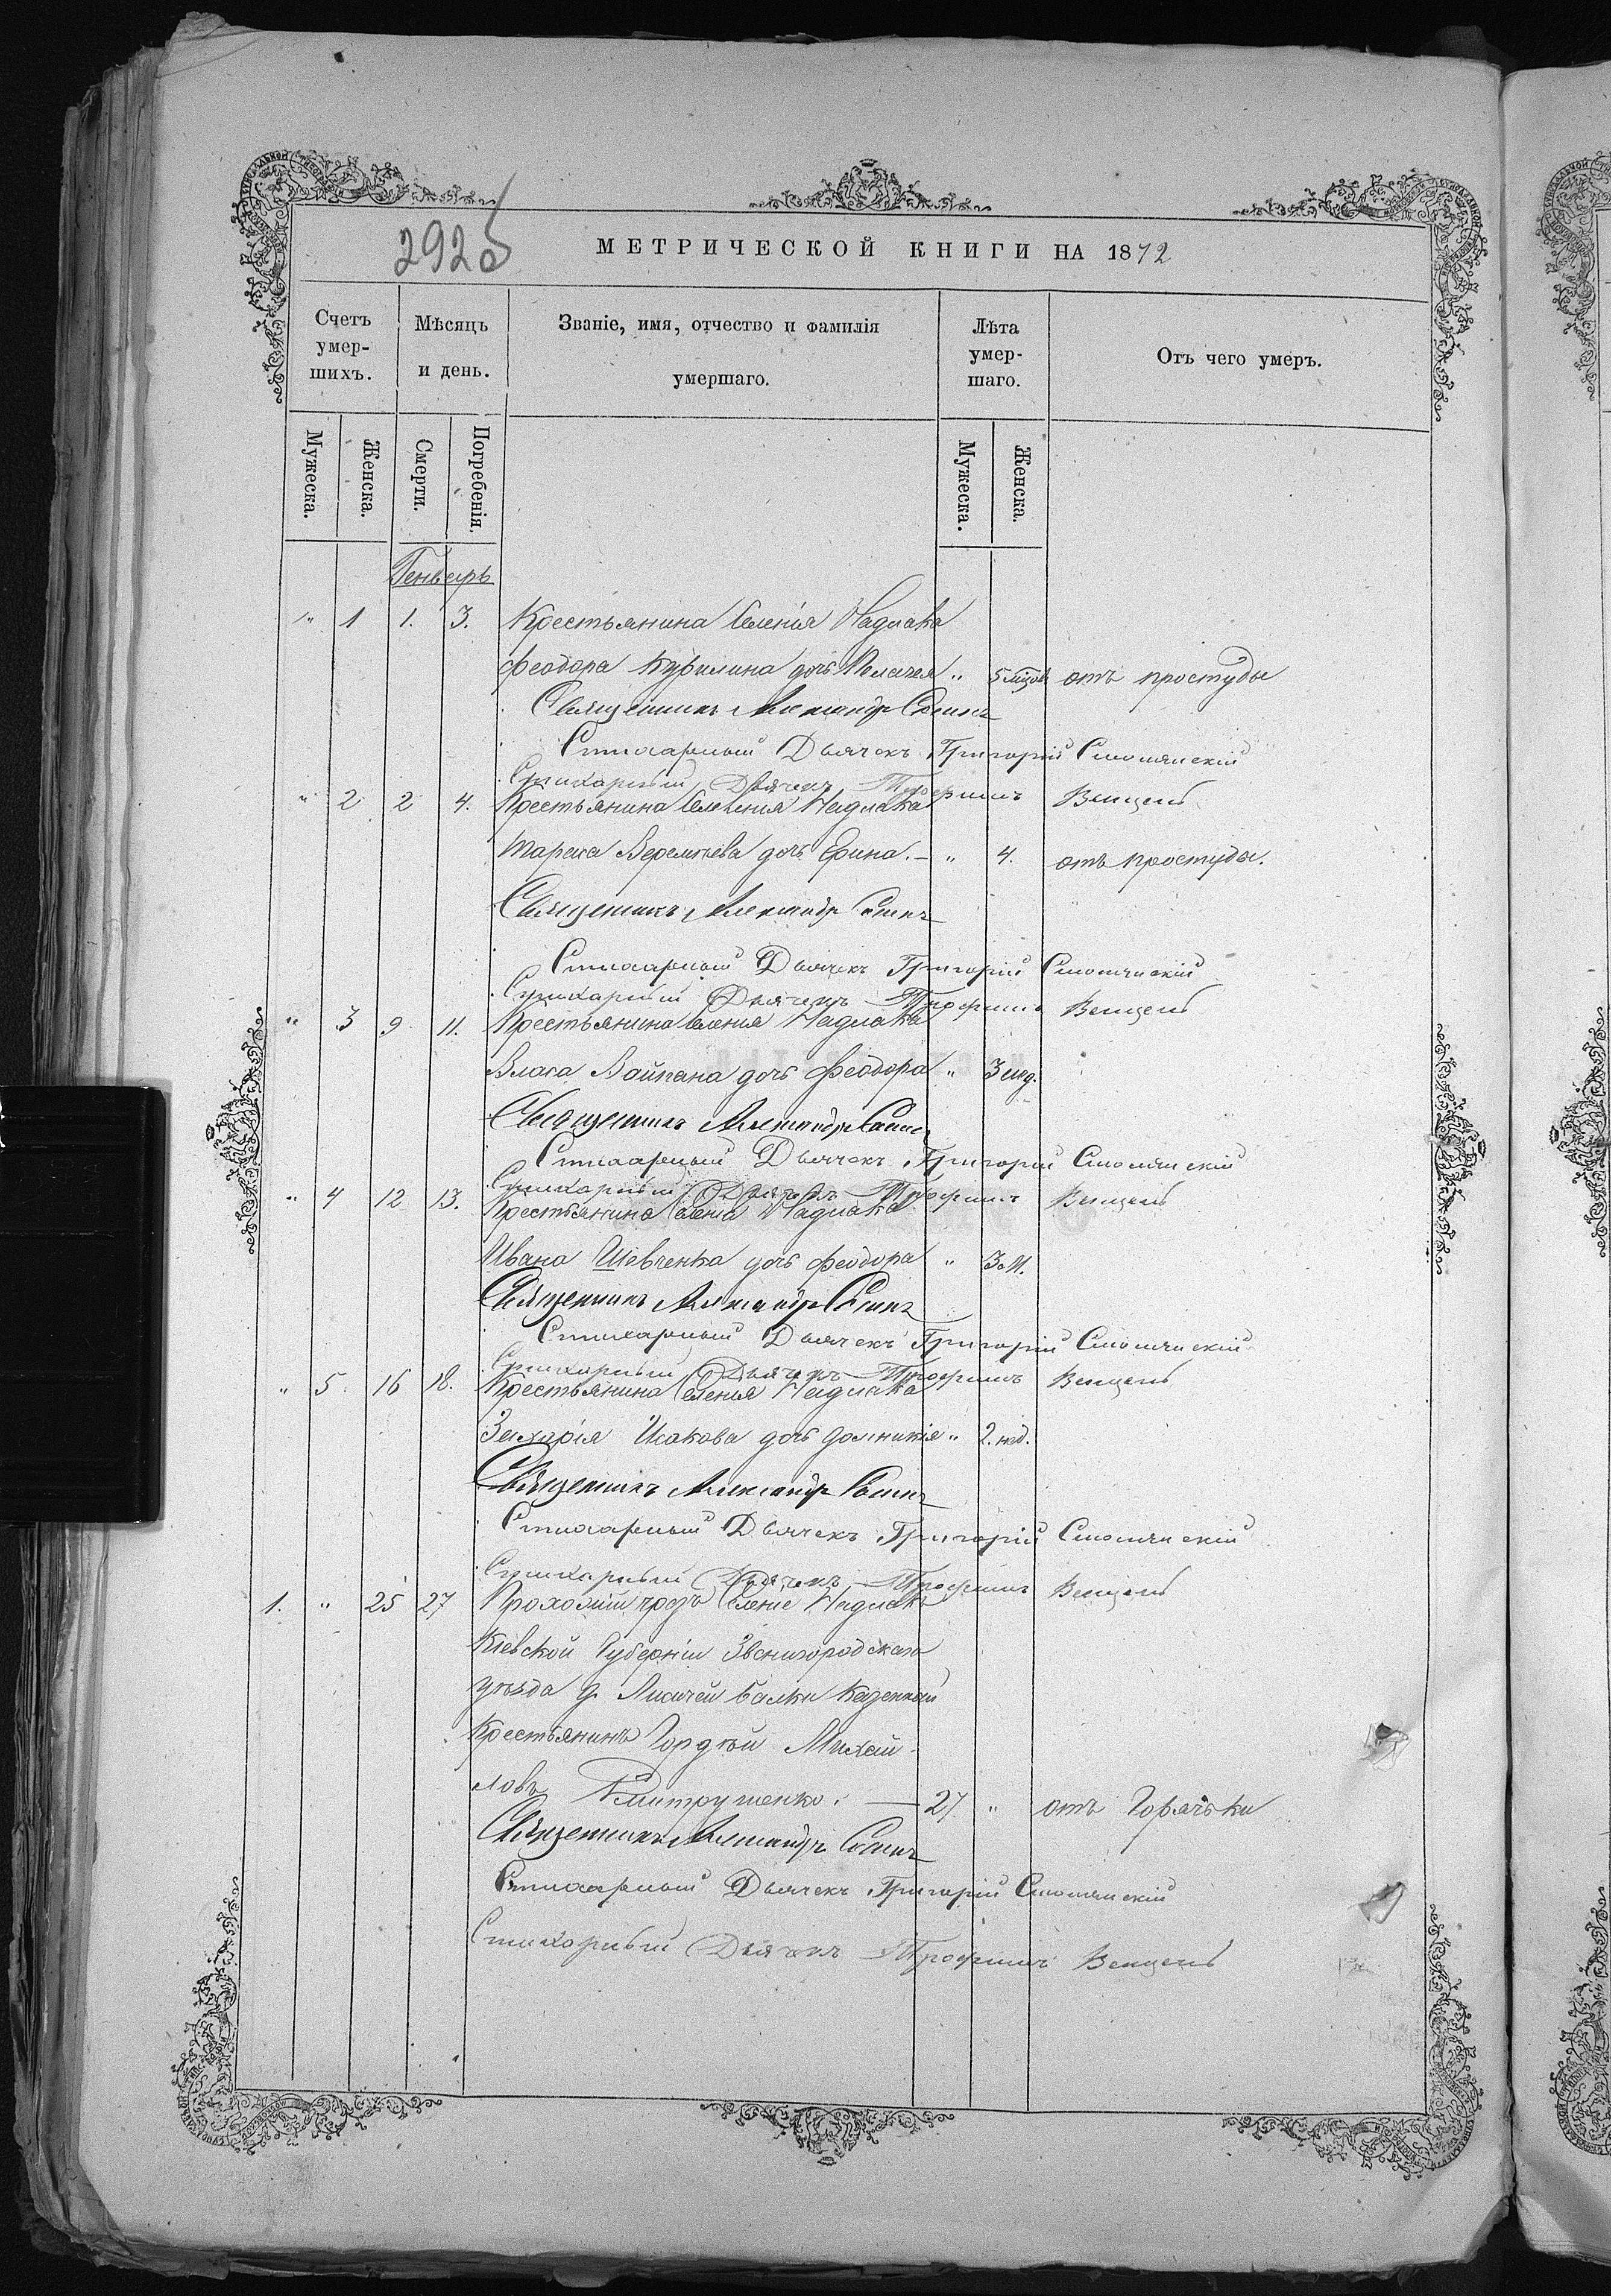 292б
МЕТРИЧЕСКОЙ КНИГИ НА 1872
Счетъ умер-шихъ.
Мѣсяцъ и день.
Званіе, имя, отчество и фамилія умершаго.
Лѣта умер-шаго.
Отъ чего умеръ.
Мужеска. Женска. Смерти. Погребенія. Мужеска. Женска.
Генварь
" 1 1. 3. Крестьянина Селенія Надлака
Феодора дочь Пелагея " 5 отъ простуды
Священникъ Александръ
Стихарный Дьячекъ Григорій Смолянскій
Стихарный Дьячекъ Трофимъ Венцель
" 2 2 4. Крестьянина Селенія Надлака
Тараса Веремѣева дочь Ирина. — " 4. отъ простуды.
Священникъ Александръ
Стихарный Дьячекъ Григорій Смолянскій
Стихарный Дьячекъ Трофимъ Венцель
" 3 9 11. Крестьянина Селенія Надлака
Власа дочь Феодора " 3 нед.
Священникъ Александръ
Стихарный Дьячекъ Григорій Смолянскій
Стихарный Дьячекъ Трофимъ Венцель
" 4 12 13. Крестьянина Селенія Надлака
Ивана Шевченка дочь Феодора " 3 м.
Священникъ Александръ
Стихарный Дьячекъ Григорій Смолянскій
Стихарный Дьячекъ Трофимъ Венцель
" 5. 16 18. Крестьянина Селенія Надлака
Захарія Исакова дочь Домникія " 2. нед.
Священникъ Александръ
Стихарный Дьячекъ Григорій Смолянскій
Стихарный Дьячекъ Трофимъ Венцель
1. " 25 27 Прохожій чрезъ Селеніе Надлакъ
Кіевской Губерніи Звенигородскаго
уѣзда д. Лисичей балки Казенный
Крестьянинъ Гордѣй Михай-
ловъ Дмитрушенко. — 27 " отъ Горячьки
Священникъ Александръ
Стихарный Дьячекъ Григорій Смолянскій
Стихарный Дьячекъ Трофимъ Венцель